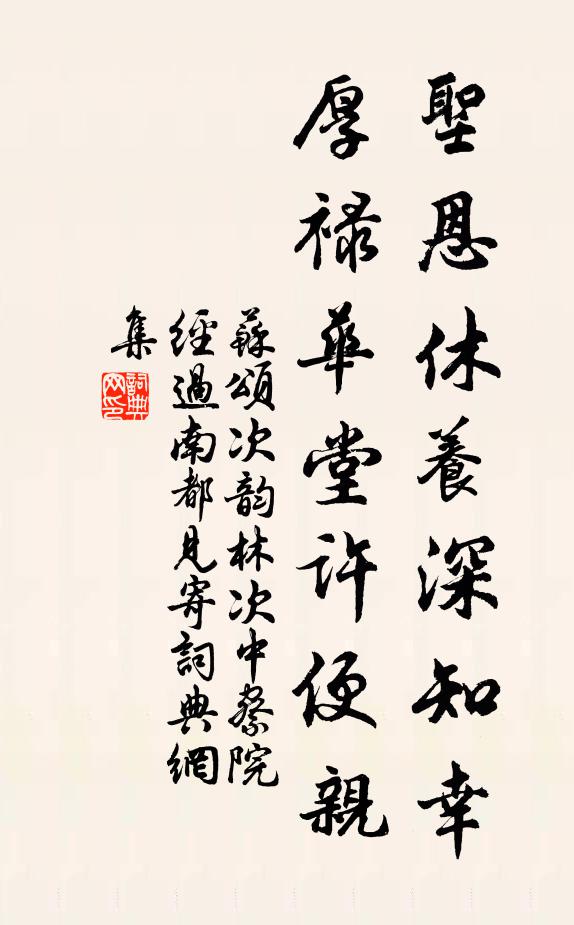 聖恩休養深知幸
厚祿華堂許便親
蘇頌次韵林次中察院
經過南都見寄詞典網
集
詞典
网印